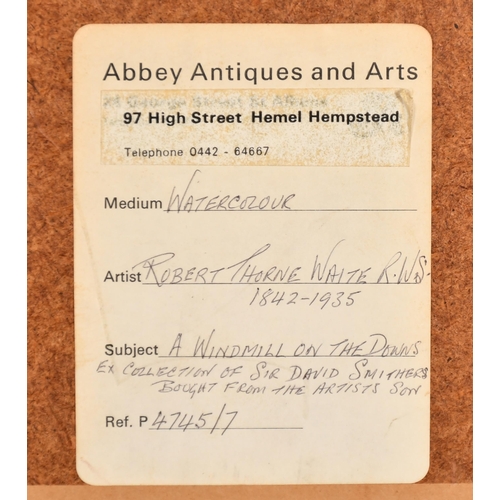 Abbey Antiques and Arts
97 High Street Hemel Hempstead
Telephone 0442 - 64667
Medium WATERCOLOUR
Artist ROBERT THORNE WAITE R.W.S.
1842-1935
Subject A WINDMILL ON THE DOWNS
EX COLLECTION OF SIR DAVID SMITHERS
BOUGHT FROM THE ARTISTS SON
Ref. P 4745/7